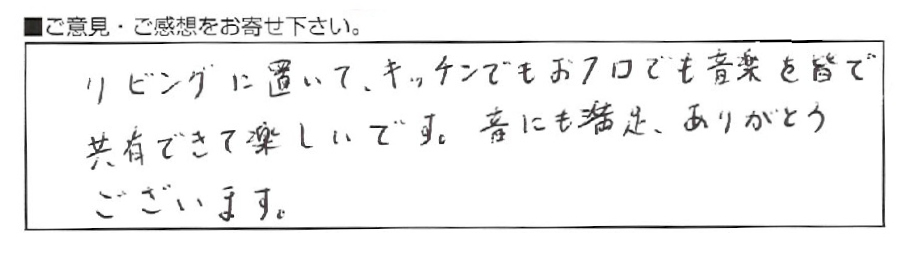 ■ご意見・ご感想をお寄せ下さい。
リビングに置いて、キッチンでもおフロでも音楽を皆で
共有できて楽しいです。音にも満足、ありがとう
ございます。